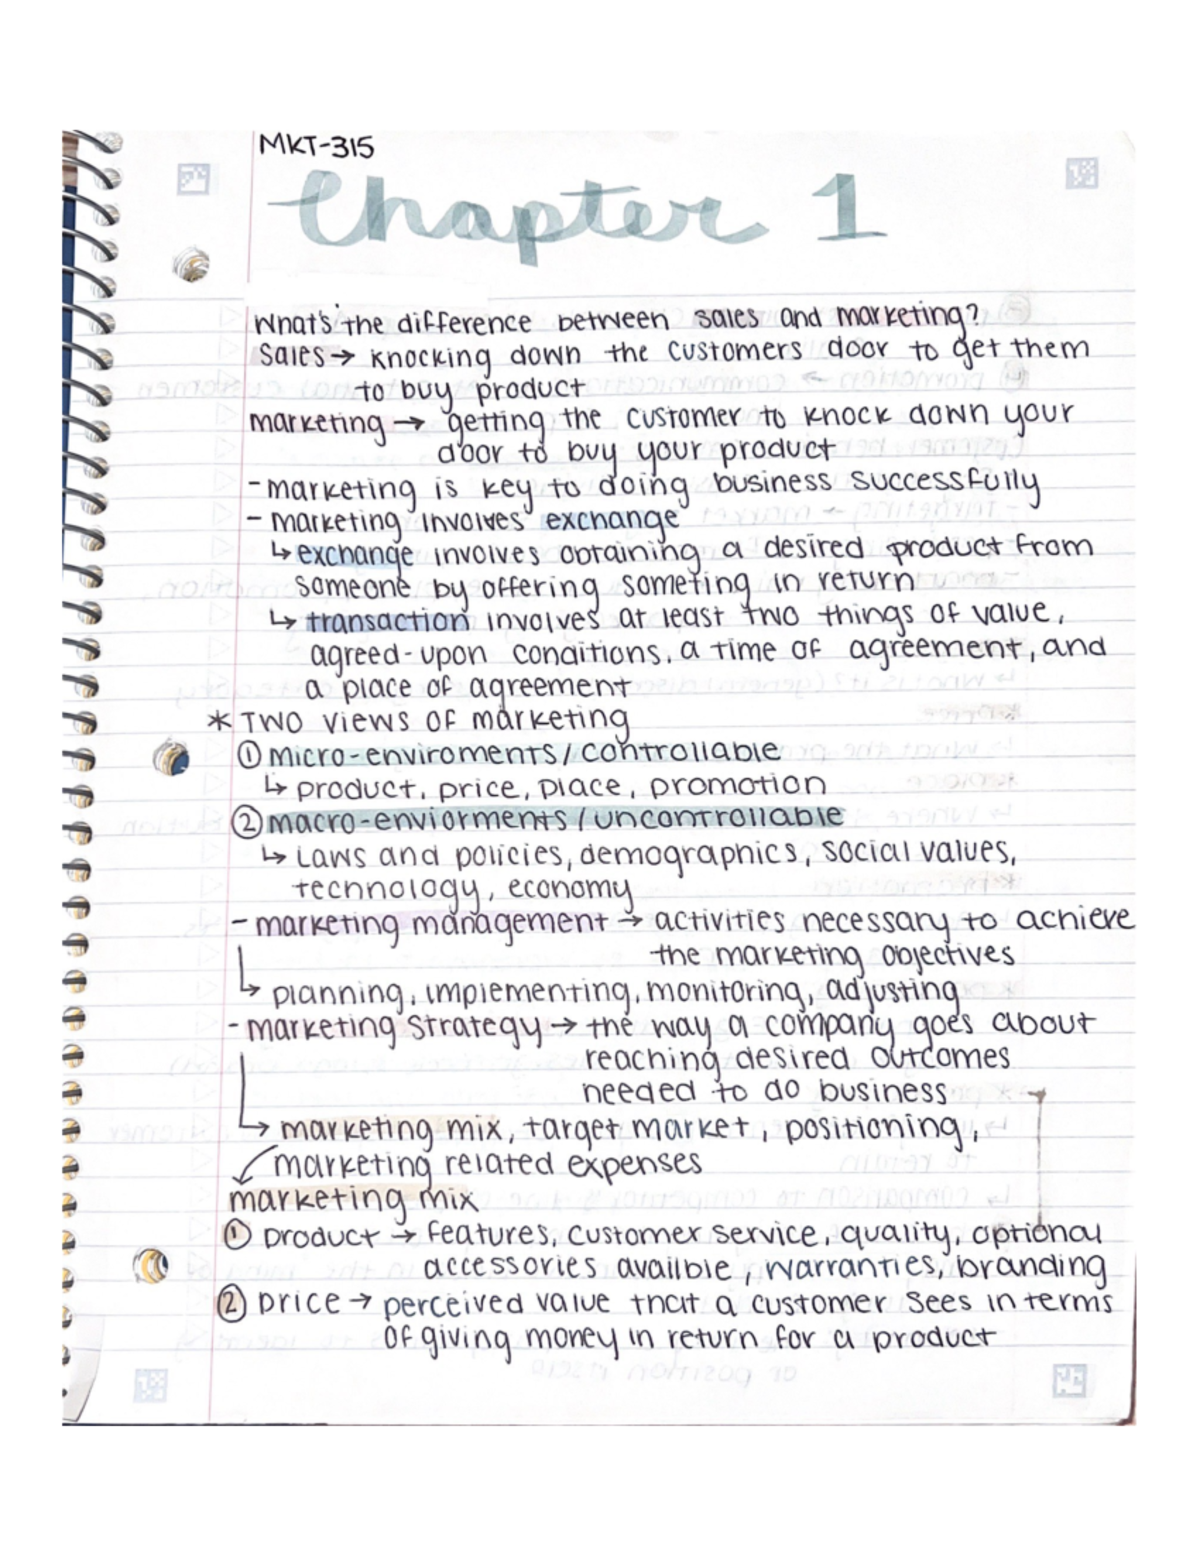 MKT-315
Chapter 1
What's the difference between sales and marketing?
Sales → knocking down the customers door to get them
to buy product
marketing → getting the customer to knock down your
door to buy your product
- marketing is key to doing business successfully
- marketing involves exchange
↳ exchange involves obtaining a desired product from
someone by offering someting in return
↳ transaction involves at least two things of value,
agreed-upon conditions, a time of agreement, and
a place of agreement
* TWO views of marketing
① micro-enviroments/controllable
↳ product, price, place, promotion
② macro-enviorments/uncontrollable
↳ Laws and policies, demographics, social values,
technology, economy
- marketing management → activities necessary to achieve
the marketing objectives
↳ planning, implementing, monitoring, adjusting
- marketing strategy → the way a company goes about
reaching desired outcomes
needed to do business
↳ marketing mix, target market, positioning,
marketing related expenses
marketing mix
① product → features, customer service, quality, optional
accessories availble, warranties, branding
② price → perceived value that a customer sees in terms
of giving money in return for a product